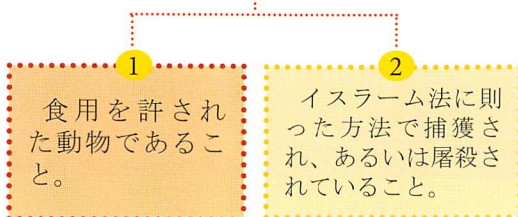 1
食用を許され
た動物であるこ
と。
2
イスラーム法に則
った方法で捕獲さ
れ、あるいは屠殺さ
れていること。